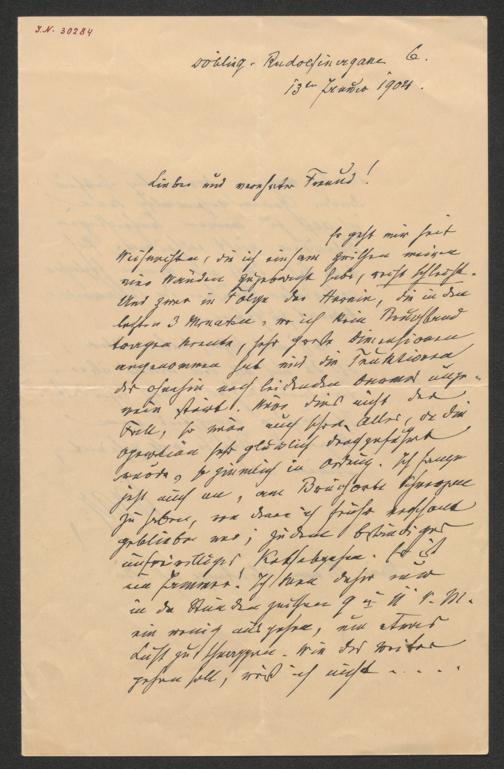 I.N. 30284
Döbling - Rudolfinergasse 6.
13ten Jänner 1904.
Lieber und verehrter Freund!
Es geht mir seit
Weihnachten, die ich einsam zwischen meinen
vier Wänden zugebracht habe, recht schlecht.
Und zwar in Folge der Hernie, die in den
letzten 3 Monaten, wo ich kein Bruchband
tragen konnte, sehr große Dimensionen
angenommen hat und die Funktionen
des ohnehin noch leidenden Darmes unge-
mein stört. Wäre dies nicht der
Fall, so wäre auch schon Alles, da die
Operation sehr glücklich durchgeführt
wurde, so ziemlich in Ordnung. Ich fange
jetzt auch an, am Bruchorte Schmerzen
zu haben, von denen ich früher verschont
geblieben war; zudem beständiges
unfreiwilliges
ein Jammer! Ich kann daher nur
in den Stunden zwischen 9 u 11 V. M.
ein wenig ausgehen, um etwas
Luft zu schnappen. Wie das weiter
gehen soll, weiß ich nicht . . . .